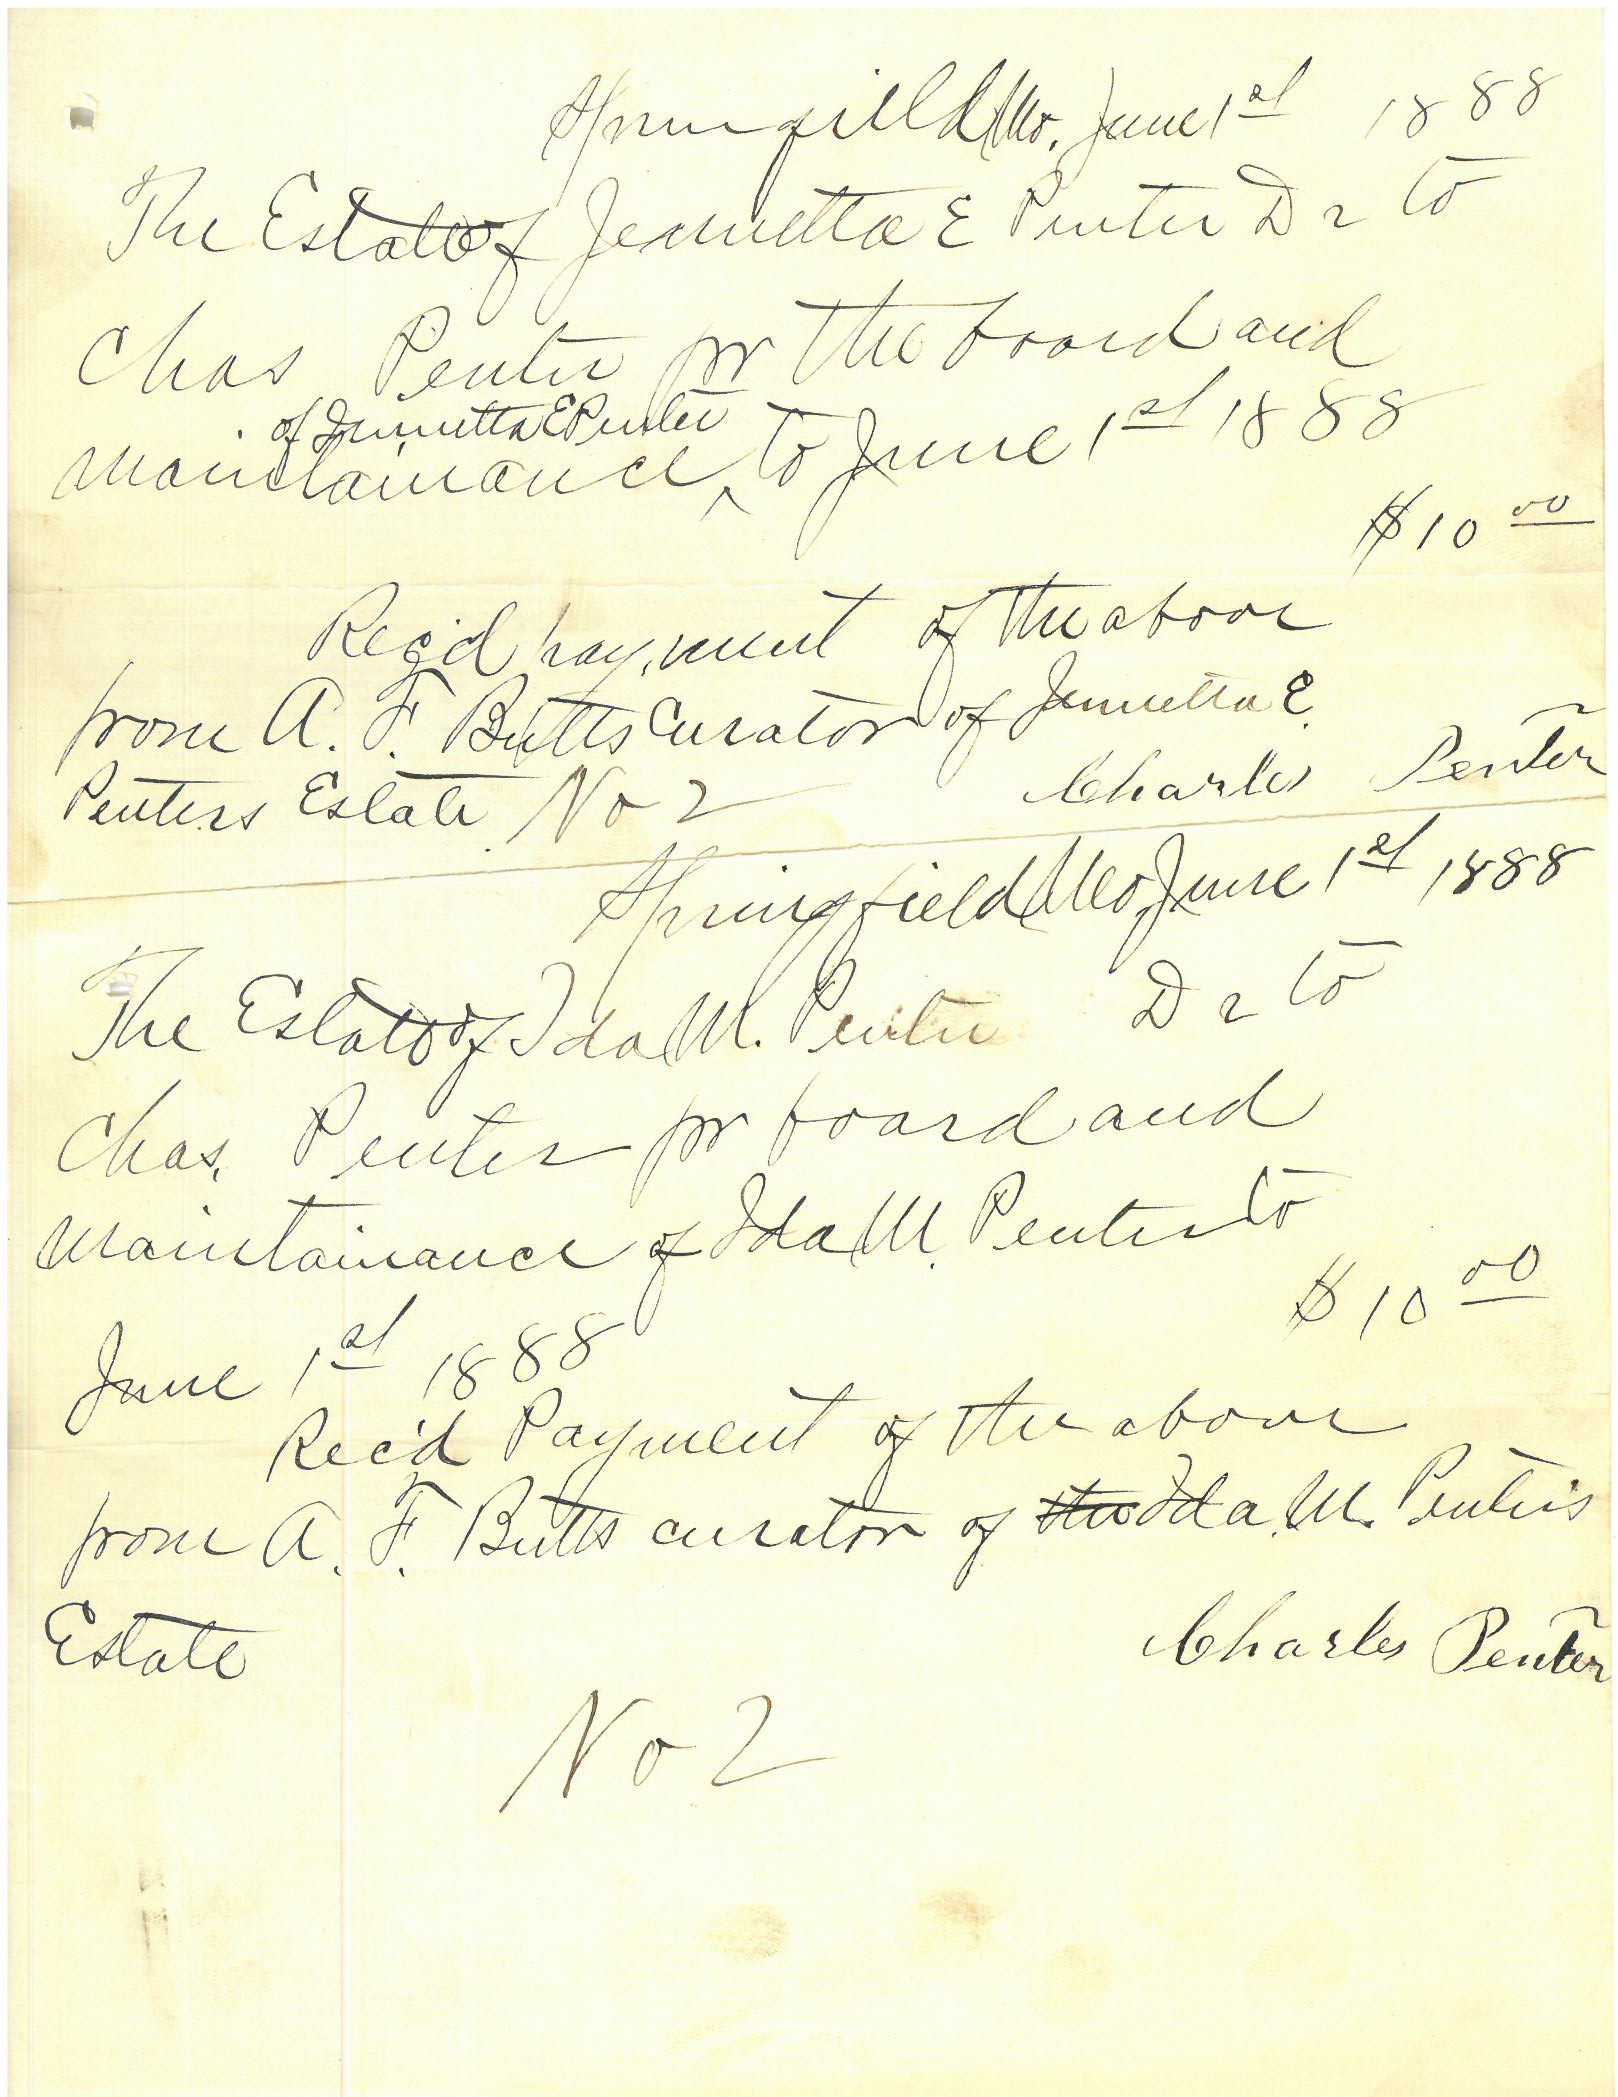 Springfield Mo. June 1st 1888
The Estate of Jennetta E Penter Dr to
Chas Penter for the board and
of Jennetta E Penter
maintainance ^ to June 1st 1888
$10 00
Rec'd payment of the above
from A. F. Butts Curator of Jennetta E.
Penters Estate No 2 Charles Penter
Springfield Mo June 1st 1888
The Estate of Ida M. Penter Dr to
Chas. Penter for board and
maintainance of Ida M. Penter to
$10 00
June 1st 1888
Rec'd Payment of the above
from A. F. Butts curator of the Ida M. Penter's
Estate Charles Penter
No 2